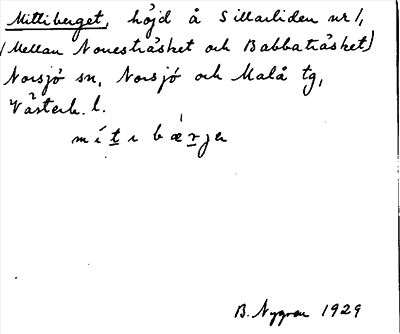 Mittiberget, höjd å Sillarliden nr 1,
(Mellan Nonesträsket och Babbaträsket)
Norsjö sn, Norsjö och Malå tg,
Västerb. l.
mítibærjer
B. Nygren 1929